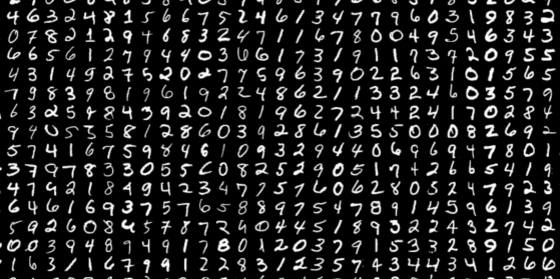 4 6 3 2 4 8 1 5 6 6 7 5 2 4 6 1 3 4 7 7 9 6 0 3 1 9 8 3 2
0 7 8 2 1 2 9 4 6 8 3 2 4 7 1 1 6 7 8 0 0 4 9 5 4 6 3 4 3
6 6 5 6 1 2 7 9 4 4 0 3 6 6 1 7 3 1 9 1 1 7 3 7 2 0 9 5 5
4 3 1 4 9 2 7 5 2 0 2 7 7 5 9 6 3 9 0 2 2 6 3 1 0 1 5 6 5
7 9 8 3 9 8 1 9 6 1 9 2 2 4 8 6 2 1 1 3 3 2 4 6 0 3 5 7 9
6 3 2 5 4 8 4 3 9 2 0 1 8 1 9 6 2 7 2 4 4 2 4 1 7 0 2 8 4
9 4 0 5 3 5 8 1 2 8 6 0 3 9 2 8 6 1 3 5 5 0 0 0 8 2 6 9 2
5 7 4 1 6 7 5 9 8 4 6 1 0 9 3 2 9 4 4 0 6 9 6 9 4 7 8 0 1
3 7 9 7 8 3 3 0 5 5 6 0 8 2 5 2 9 0 5 1 7 4 2 6 6 5 4 1 9
4 7 4 2 1 8 4 9 4 2 3 4 7 7 5 7 6 0 6 2 8 0 5 2 4 7 9 2 3
6 4 6 1 6 9 3 7 5 7 6 5 8 8 9 7 5 4 7 8 9 1 4 5 9 6 1 3 9
5 9 2 6 0 8 4 5 7 8 7 2 6 0 4 4 5 1 8 9 3 2 2 4 3 2 7 4 2
0 0 3 9 4 8 7 4 9 1 7 8 0 1 2 0 3 7 9 1 5 3 3 2 8 9 1 5 0
1 6 3 1 1 6 7 9 9 1 2 2 8 3 1 2 3 5 7 4 3 4 4 3 4 1 2 6 6